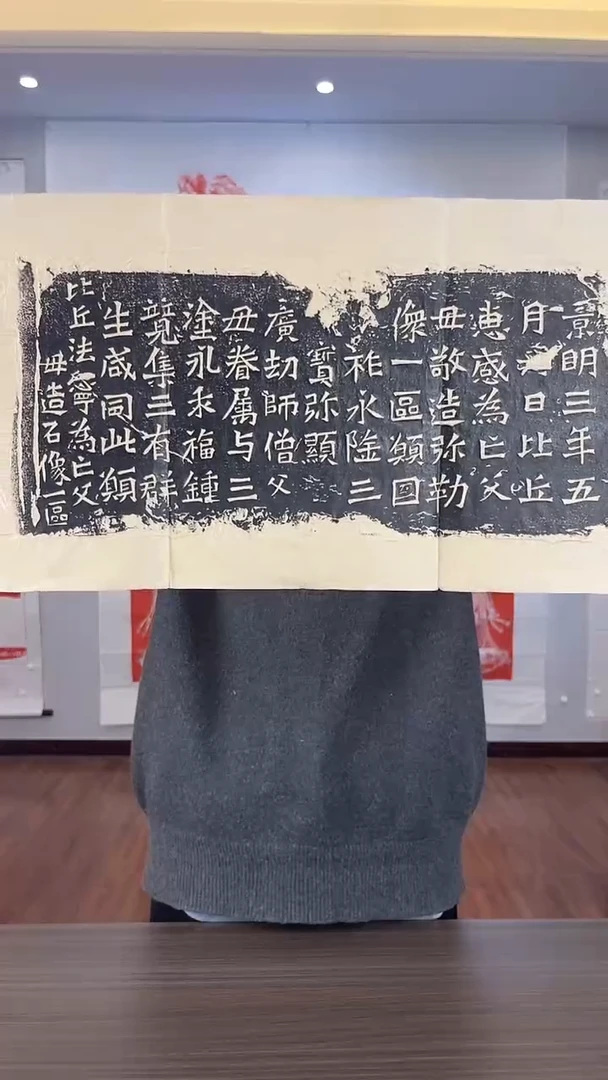 景明三年五
月日比丘
惠感為亡父
母敬造弥勒
像一區願国
祚永隆三
寳弥顯
廣劫師僧父
母眷属与三
塗永乖福鍾
竟集三有群
生咸同此願
比丘法寧為亡父
母造石像一區